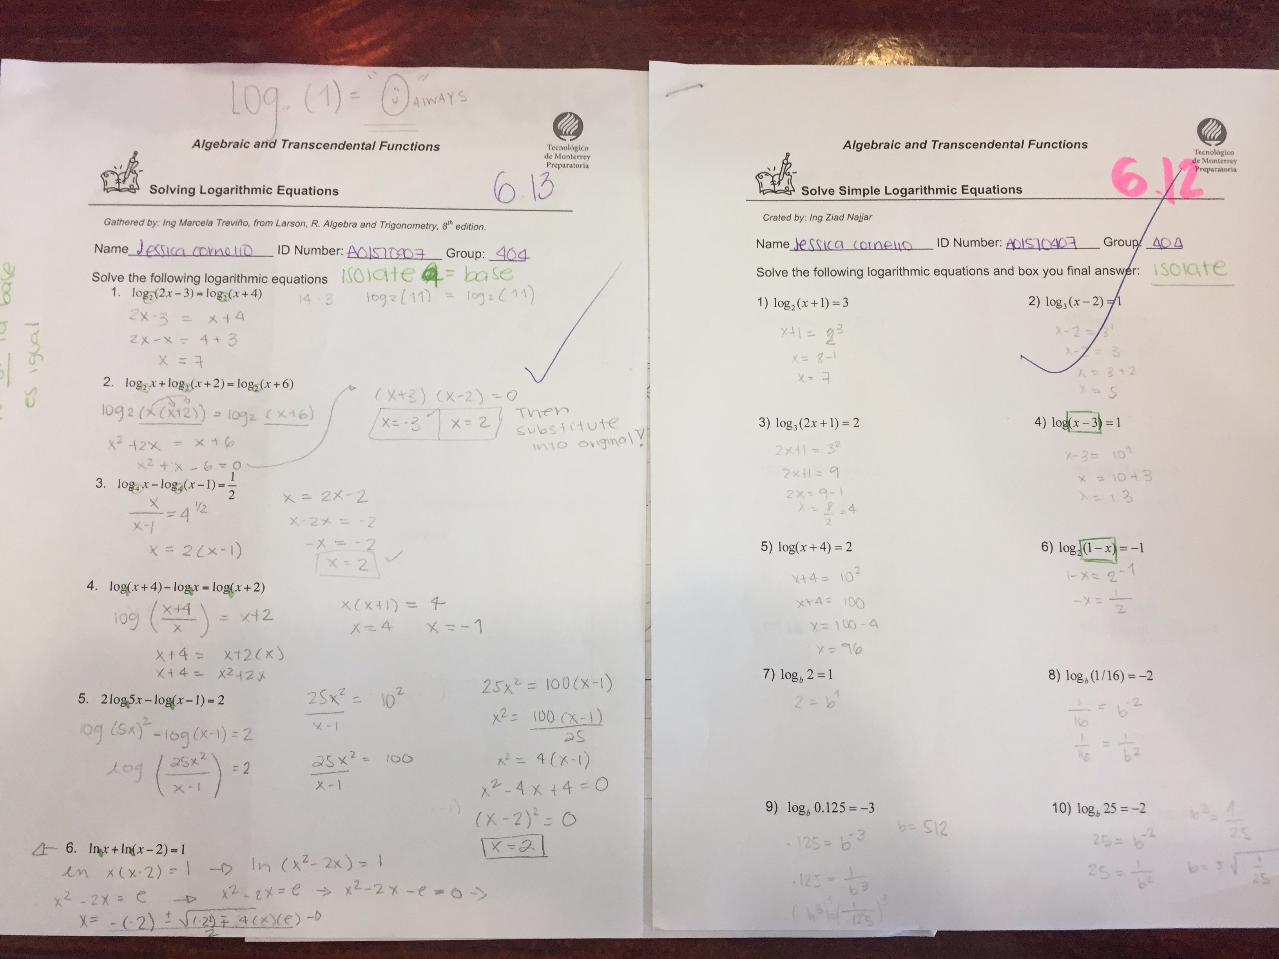 Log. (1) = "0" ALWAYS
Algebraic and Transcendental Functions
Tecnológico
de Monterrey
Preparatoria
Solving Logarithmic Equations
6.13
Gathered by: Ing Marcela Treviño, from Larson, R. Algebra and Trigonometry, 8th edition.
Name Jessica cornelio ID Number: A01570407 Group: 404
Solve the following logarithmic equations isolate = base
la base
es igual
1. log₂(2x−3)=log₂(x+4)
14-3 log2(11) = log2(11)
2x-3 = x+4
2x-x = 4+3
x = 7
2. log₂x+log₂(x+2)=log₂(x+6)
log2(x(x+2)) = log2(x+6)
x²+2x = x+6
x²+x-6=0
(x+3) (x-2)=0
x=-3 x=2
Then
substitute
into original!
3. log₄x−log₄(x−1)=1/2
x/(x-1) = 4^1/2
x = 2(x-1)
x = 2x-2
x-2x = -2
-x = -2
x = 2
4. log(x+4)−logx=log(x+2)
log ((x+4)/x) = x+2
x+4 = x+2(x)
x+4 = x²+2x
x(x+1) = 4
x=4 x=-1
5. 2log5x−log(x−1)=2
log(5x)²-log(x-1)=2
log (25x²/(x-1)) = 2
25x²/(x-1) = 10²
25x²/(x-1) = 100
25x²=100(x-1)
x²= 100(x-1)/25
x²= 4(x-1)
x²-4x+4=0
(x-2)²=0
x=2
6. lnx+ln(x−2)=1
ln x(x-2)=1 → ln(x²-2x)=1
x²-2x=e → x²-2x=e → x²-2x-e=0 →
Algebraic and Transcendental Functions
Tecnológico
de Monterrey
Preparatoria
Solve Simple Logarithmic Equations
6.12
Crated by: Ing Ziad Najjar
Name Jessica cornelio ID Number: A01570407 Group: 404
Solve the following logarithmic equations and box you final answer: isolate
1) log₂(x+1)=3
x+1= 2³
x= 8-1
x= 7
2) log₃(x−2)=1
x-2=3¹
x-2=3
x=3+2
x=5
3) log₃(2x+1)=2
2x+1=3²
2x+1=9
2x=9-1
x=8/2=4
4) log(x−3)=1
x-3= 10¹
x = 10+3
x=13
5) log(x+4)=2
x+4= 10²
x+4= 100
x=100-4
x=96
6) log₂(1−x)=−1
1-x=2⁻¹
-x=1/2
7) log_b 2=1
2=b¹
8) log_b(1/16)=−2
1/16 = b⁻²
1/16 = 1/b²
9) log_b 0.125=−3
.125=b⁻³
b=512
.125=1/b³
10) log_b 25=−2
25=b⁻²
25=1/b²
b²=1/25
b=±√1/25